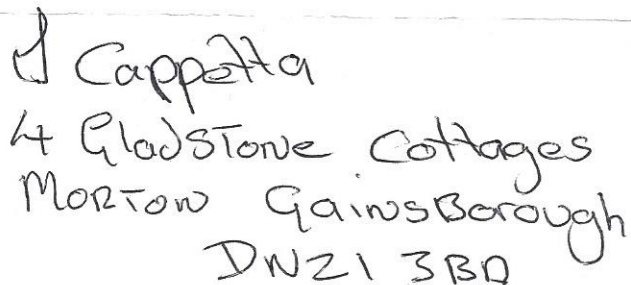 J Cappetta
4 Gladstone Cottages
Morton Gainsborough
DN21 3BD